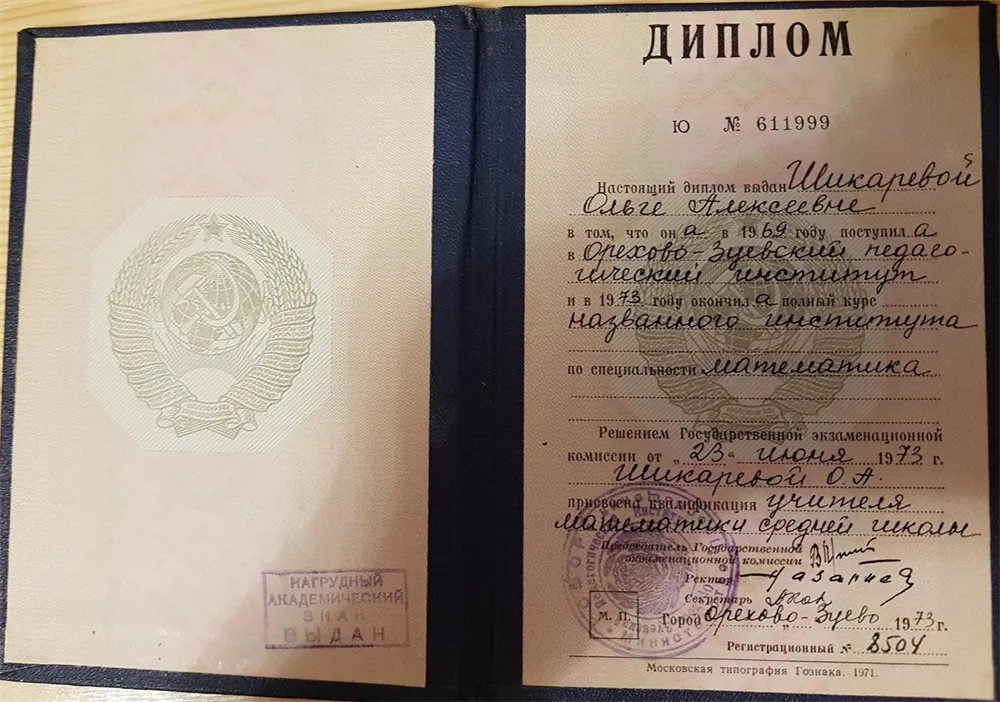 НАГРУДНЫЙ
АКАДЕМИЧЕСКИЙ
ЗНАК
ВЫДАН
ДИПЛОМ
Ю № 611999
Настоящий диплом выдан Шикаревой
Ольге Алексеевне
в том, что она в 1969 году поступила
в Орехово-Зуевский педаго-
гический институт
и в 1973 году окончила полный курс
названного института
по специальности математика
Решением Государственной экзаменационной
комиссии от „23“ июня 1973 г.
Шикаревой О.А.
присвоена квалификация учителя
математики средней школы
Председатель Государственной
экзаменационной комиссии
Ректор
Секретарь
М. П. Город Орехово-Зуево 1973 г.
Регистрационный № 8504
Московская типография Гознака. 1971.